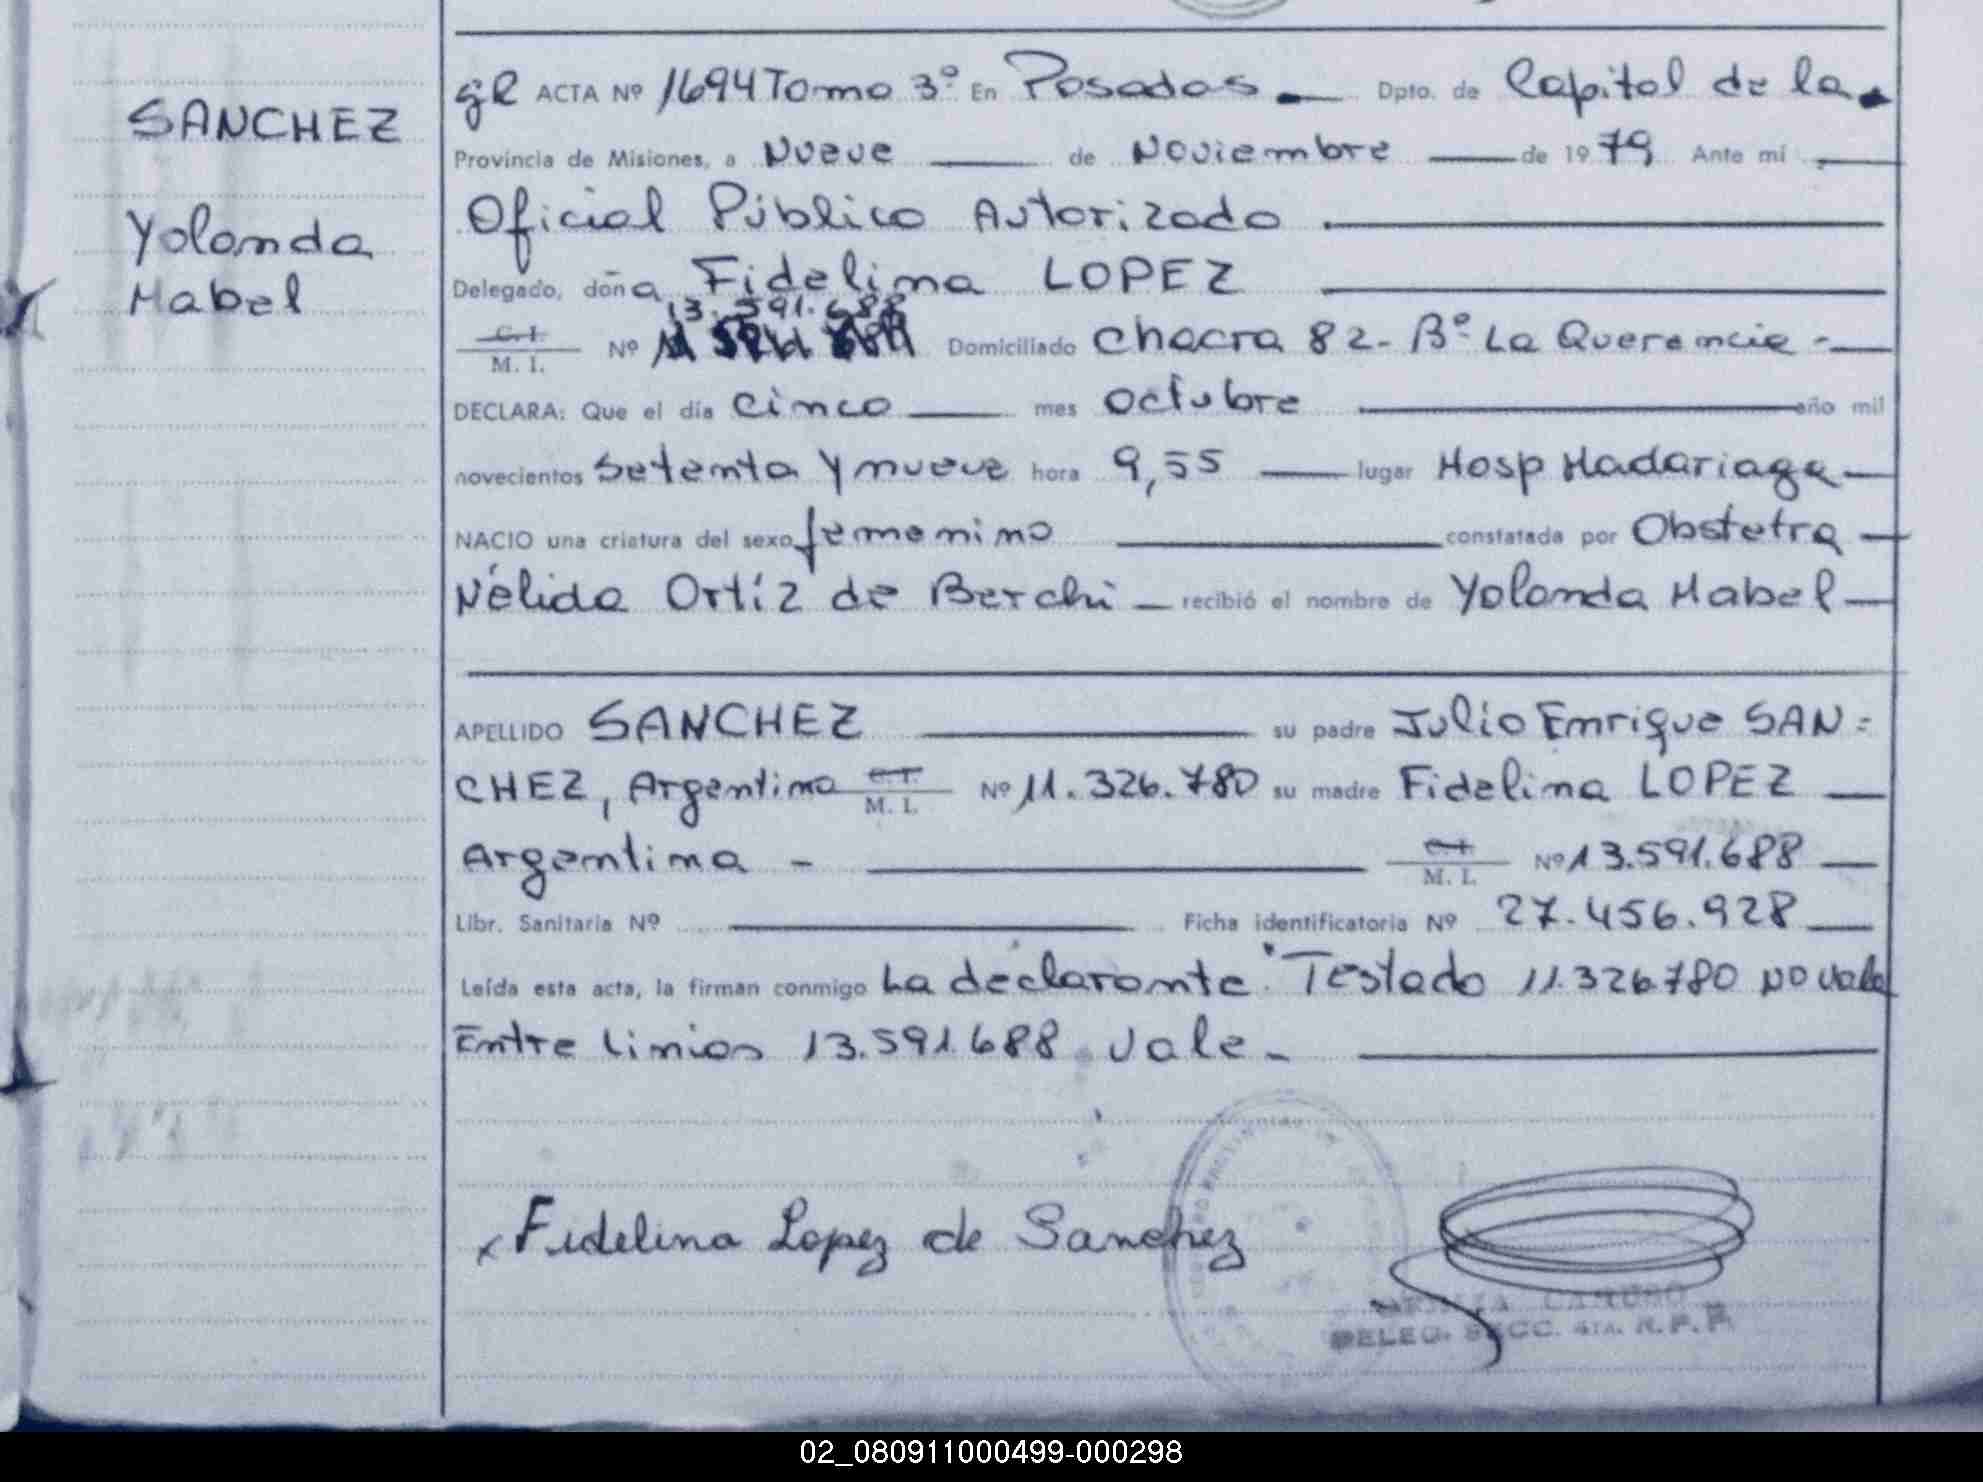 SANCHEZ
Yolanda
Mabel
gR ACTA Nº 1694 Tomo 3º En Posadas Dpto. de Capital de la
Provincia de Misiones, a Nueve de Noviembre de 1979 Ante mi
Oficial Público Autorizado
Delegado, doña Fidelina LOPEZ
13.591.688
C. I.
M. I. Nº Domiciliado Chacra 82- Bº La Querencia -
DECLARA: Que el día cinco mes Octubre año mil
novecientos Setenta y nueve hora 9,55 lugar Hosp Madariaga
NACIO una criatura del sexo femenino constatada por Obstetra
Nélida Ortíz de Berchi recibió el nombre de Yolanda Mabel
APELLIDO SANCHEZ su padre Julio Enrique SAN=
CHEZ, Argentino C.I. M. I. Nº 11.326.780 su madre Fidelina LOPEZ
Argentina - C.I. M. I. Nº 13.591.688
Libr. Sanitaria Nº Ficha identificatoria Nº 27.456.928
Leída esta acta, la firman conmigo La declarante. Testado 11.326.780 NO vale
Entre linias 13.591.688 vale-
x Fidelina Lopez de Sanchez
CARUSO
DELEG. SECC. 4TA. R.P.P.
02_080911000499-000298